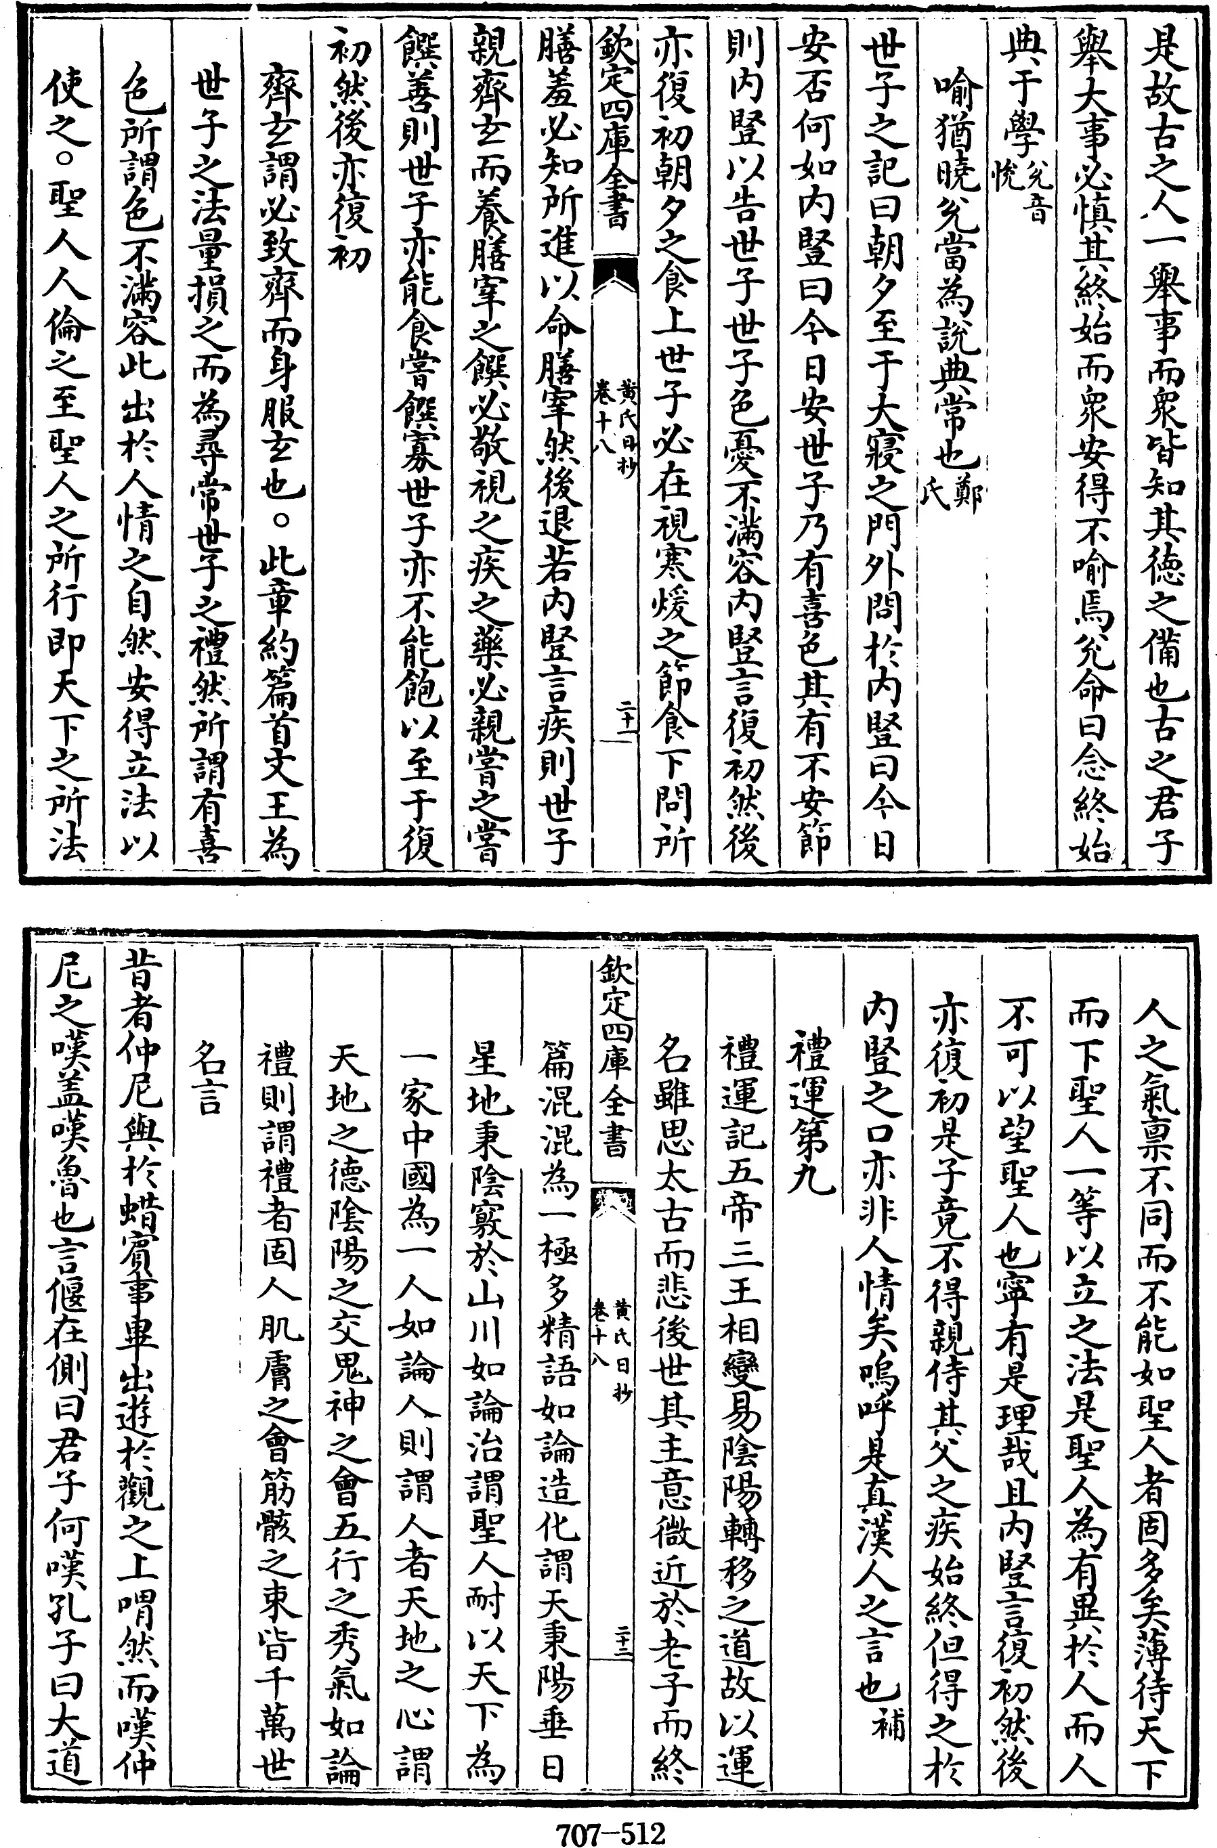 是故古之人一舉事而衆皆知其徳之備也古之君子
舉大事必慎其終始而衆安得不喻焉兊命曰念終始
典于學兊音悅
喻猶曉兊當為說典常也鄭氏
世子之記曰朝夕至于大寢之門外問於内豎曰今日
安否何如内豎曰今日安世子乃有喜色其有不安節
則内豎以告世子世子色憂不滿容内豎言復初然後
亦復初朝夕之食上世子必在視寒煖之節食下問所
欽定四庫全書
黄氏日抄
卷十八
二十一
膳羞必知所進以命膳宰然後退若内豎言疾則世子
親齊𤣥而養膳宰之饌必敬視之疾之藥必親嘗之嘗
饌善則世子亦能食嘗饌寡世子亦不能飽以至于復
初然後亦復初
齊𤣥謂必致齊而身服𤣥也○此章約篇首文王為
世子之法量損之而為尋常世子之禮然所謂有喜
色所謂色不滿容此出於人情之自然安得立法以
使之○聖人人倫之至聖人之所行即天下之所法
人之氣禀不同而不能如聖人者固多矣薄待天下
而下聖人一等以立之法是聖人為有異於人而人
不可以望聖人也寧有是理哉且内豎言復初然後
亦復初是子竟不得親侍其父之疾始終但得之於
内豎之口亦非人情矣嗚呼是真漢人之言也補
禮運第九
禮運記五帝三王相變易陰陽轉移之道故以運
名雖思太古而悲後世其主意微近於老子而終
欽定四庫全書
黄氏日抄
卷十八
二十二
篇混混為一極多精語如論造化謂天秉陽垂日
星地秉陰竅於山川如論治謂聖人耐以天下為
一家中國為一人如論人則謂人者天地之心謂
天地之德陰陽之交鬼神之會五行之秀氣如論
禮則謂禮者固人肌膚之會筋骸之束皆千萬世
名言
昔者仲尼與於蜡賓事畢出遊於觀之上喟然而嘆仲
尼之嘆盖嘆魯也言偃在側曰君子何嘆孔子曰大道
707-512